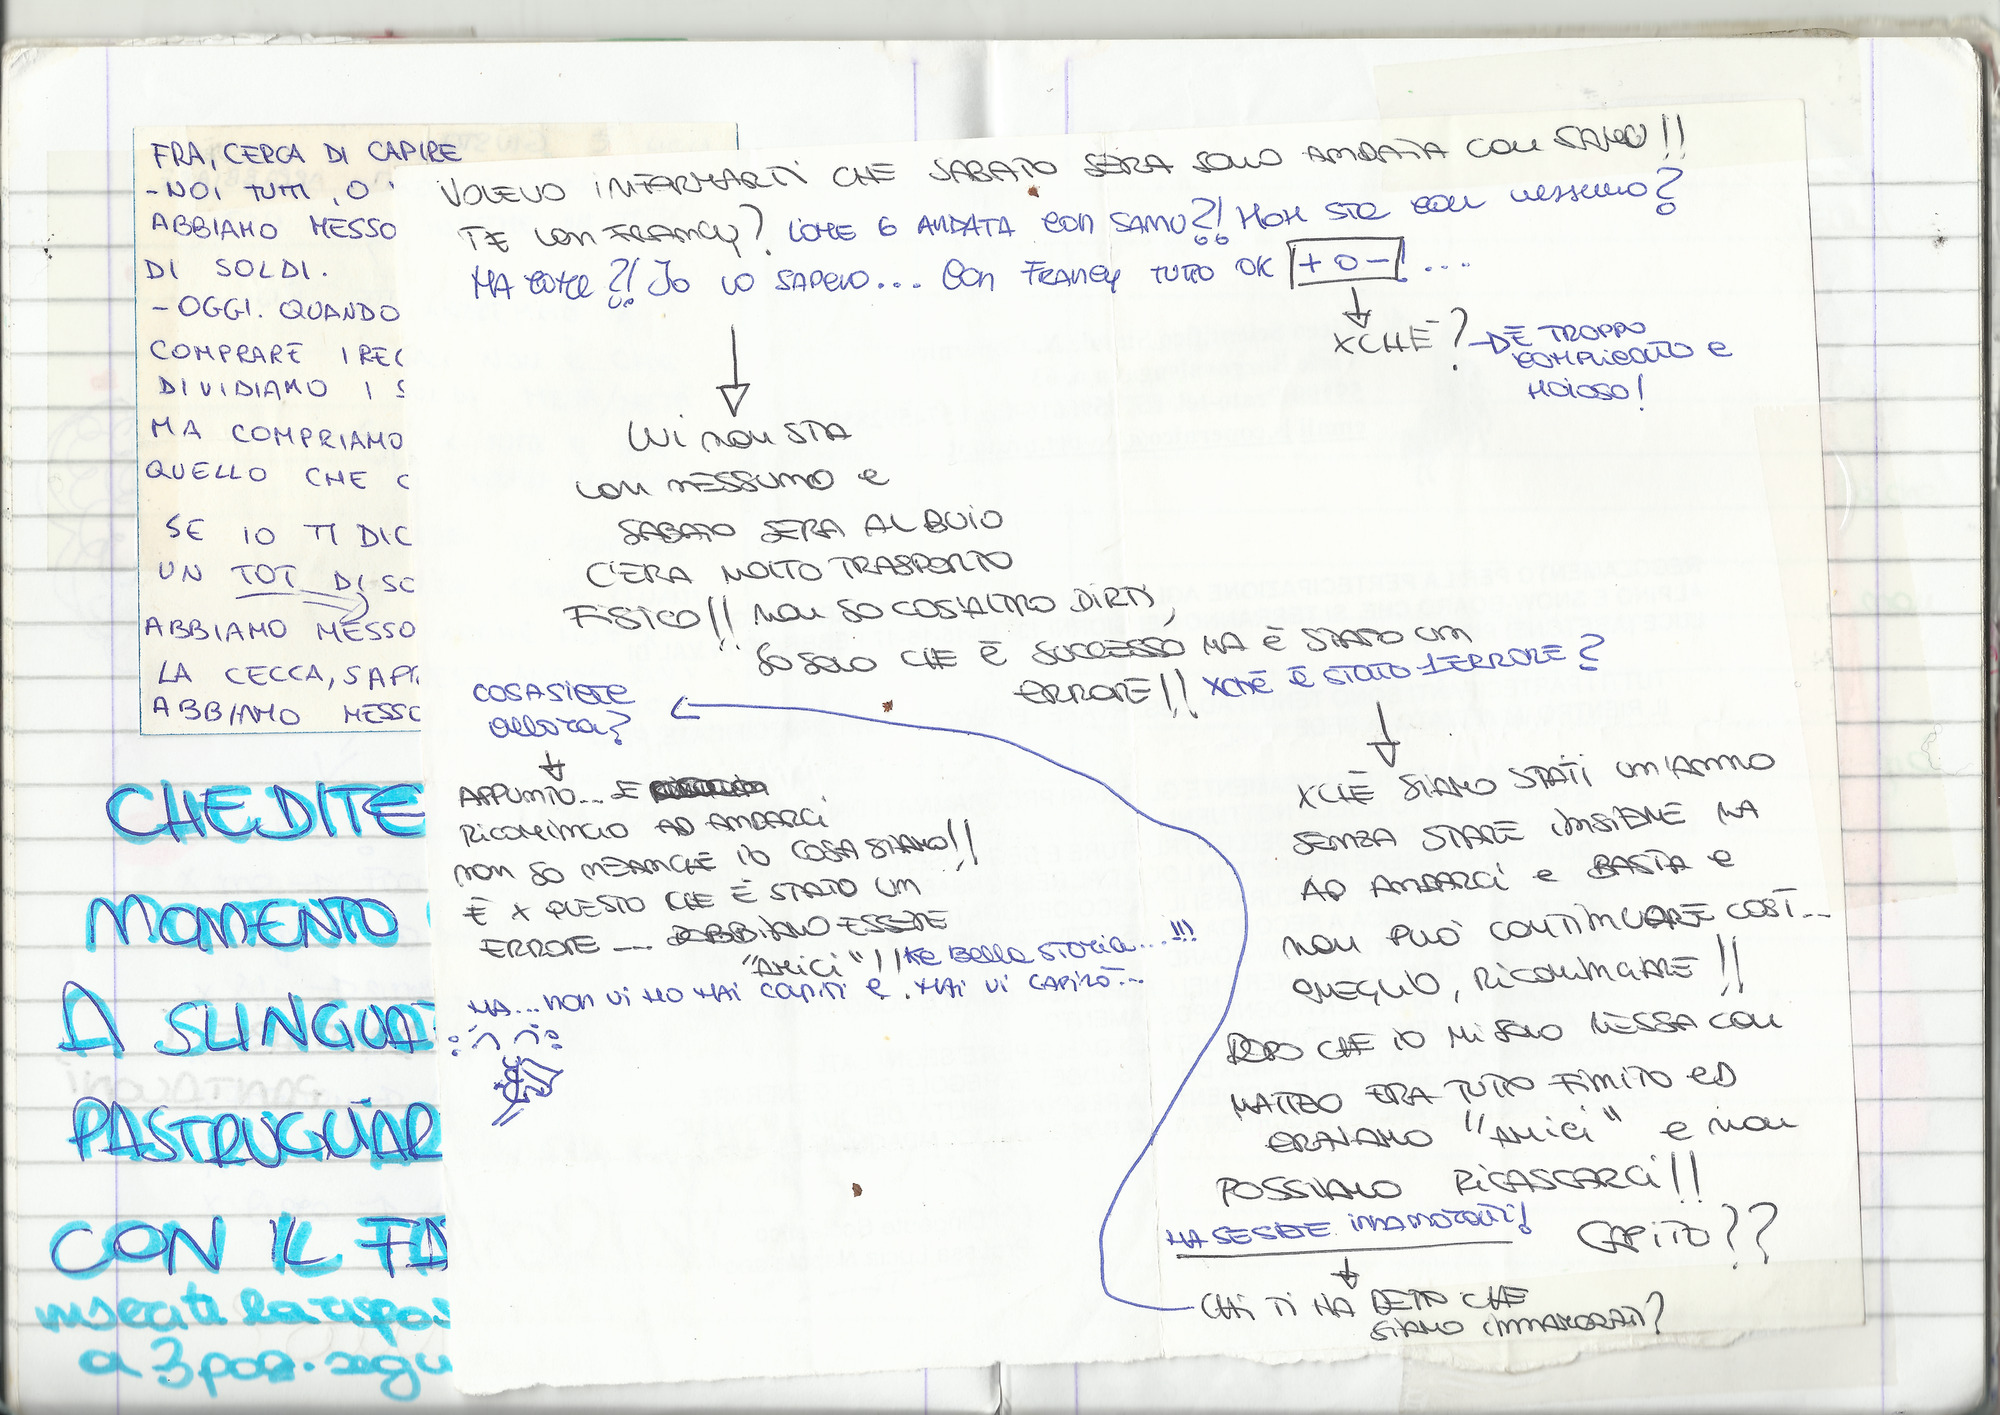 FRA, CERCA DI CAPIRE
- NOI TUTTI, O
ABBIAMO MESSO
DI SOLDI.
- OGGI. QUANDO
COMPRARE I REG
DIVIDIAMO I S
MA COMPRIAMO
QUELLO CHE C
SE IO TI DIC
UN TOT DI SC
ABBIAMO MESSO
LA CECCA, SAPR
ABBIAMO MESSO
CHE DITE
MOMENTO
A SLINGUAZ
PASTRUGLIAR
CON IL FI
inserite la rispos
a 3 pag. segu
VOLEVO INFORMARTI CHE SABATO SERA SONO ANDATA CON SAMU!!
TE CON FRANCY? COME 6 ANDATA CON SAMU?! NON STA CON NESSUNO?
MA COME?! IO LO SAPEVO... CON FRANCY TUTTO OK + O - ! ....
XCHÈ? È TROPPO
COMPLICATO E
NOIOSO!
LUI NON STA
CON NESSUNO E
SABATO SERA AL BUIO
C'ERA MOLTO TRASPORTO
FISICO!! NON SO COS'ALTRO DIRTI,
SO SOLO CHE È SUCCESSO MA È STATO UN
ERRORE!! XCHÈ È STATO 1 ERRORE?
XCHÈ SIAMO STATI UN ANNO
SENZA STARE INSIEME MA
AD ANDARCI E BASTA E
NON PUÒ CONTINUARE COSÌ...
O MEGLIO, RICOMINCIARE!!
DOPO CHE IO MI SONO MESSA CON
MATTEO ERA TUTTO FINITO ED
ERAVAMO "AMICI" E NON
POSSIAMO RICASCARCI!!
CAPITO??
MA SE SIETE INNAMORATI!
CHI TI HA DETTO CHE
SIAMO INNAMORATI?
COSA SIETE
ALLORA?
APPUNTO... SE
RICOMINCIO AD ANDARCI
NON SO NEANCHE IO COSA SIAMO!!
È X QUESTO CHE È STATO UN
ERRORE --- DOBBIAMO ESSERE
"AMICI"!! KE BELLA STORIA...!!!
MA... NON VI HO MAI CAPITI E MAI VI CAPIRÒ...